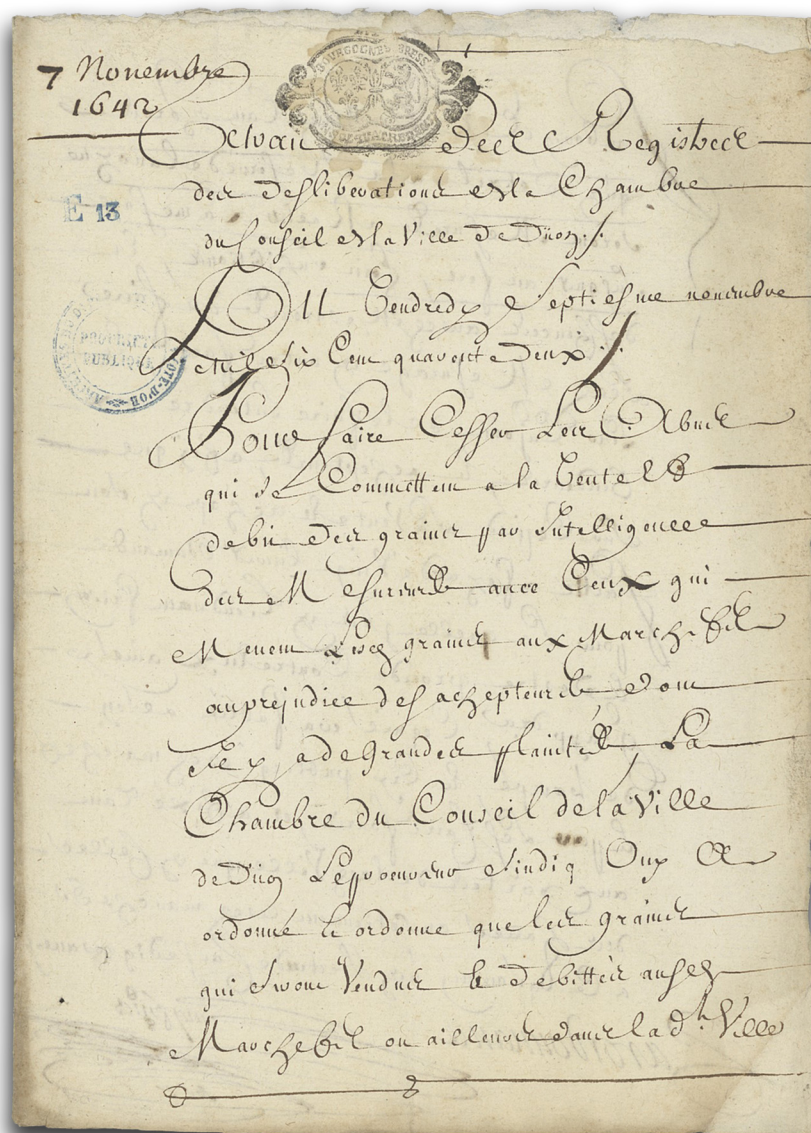 7 Novembre
1642
BOURGOGNE BRESS
Extraict des Registres
des desliberations de la Chambre
du Conseil de la Ville de Dijon ./.
Du Vendredy Septiesme novembre
mil Six Cent quarente Deux ./.
E 13
PROPRIÉTÉ
PUBLIQUE
CÔTE-D'OR
Pour faire Cesser Les Abus
qui se Commettent a la Vente et
debit des grains par Intelligence
des Mesureurs avec Ceux qui
Menent Lesd grains aux Marchefs
au prejudice des achepteurs dont
Il y a de grandes plaintes La
Chambre du Conseil de la Ville
de Dijon Le procureur sindiq Ouy A
ordonné et ordonne que les grains
qui seront Vendus et debittés ausd
Marchefs ou ailleurs dans lad.te Ville